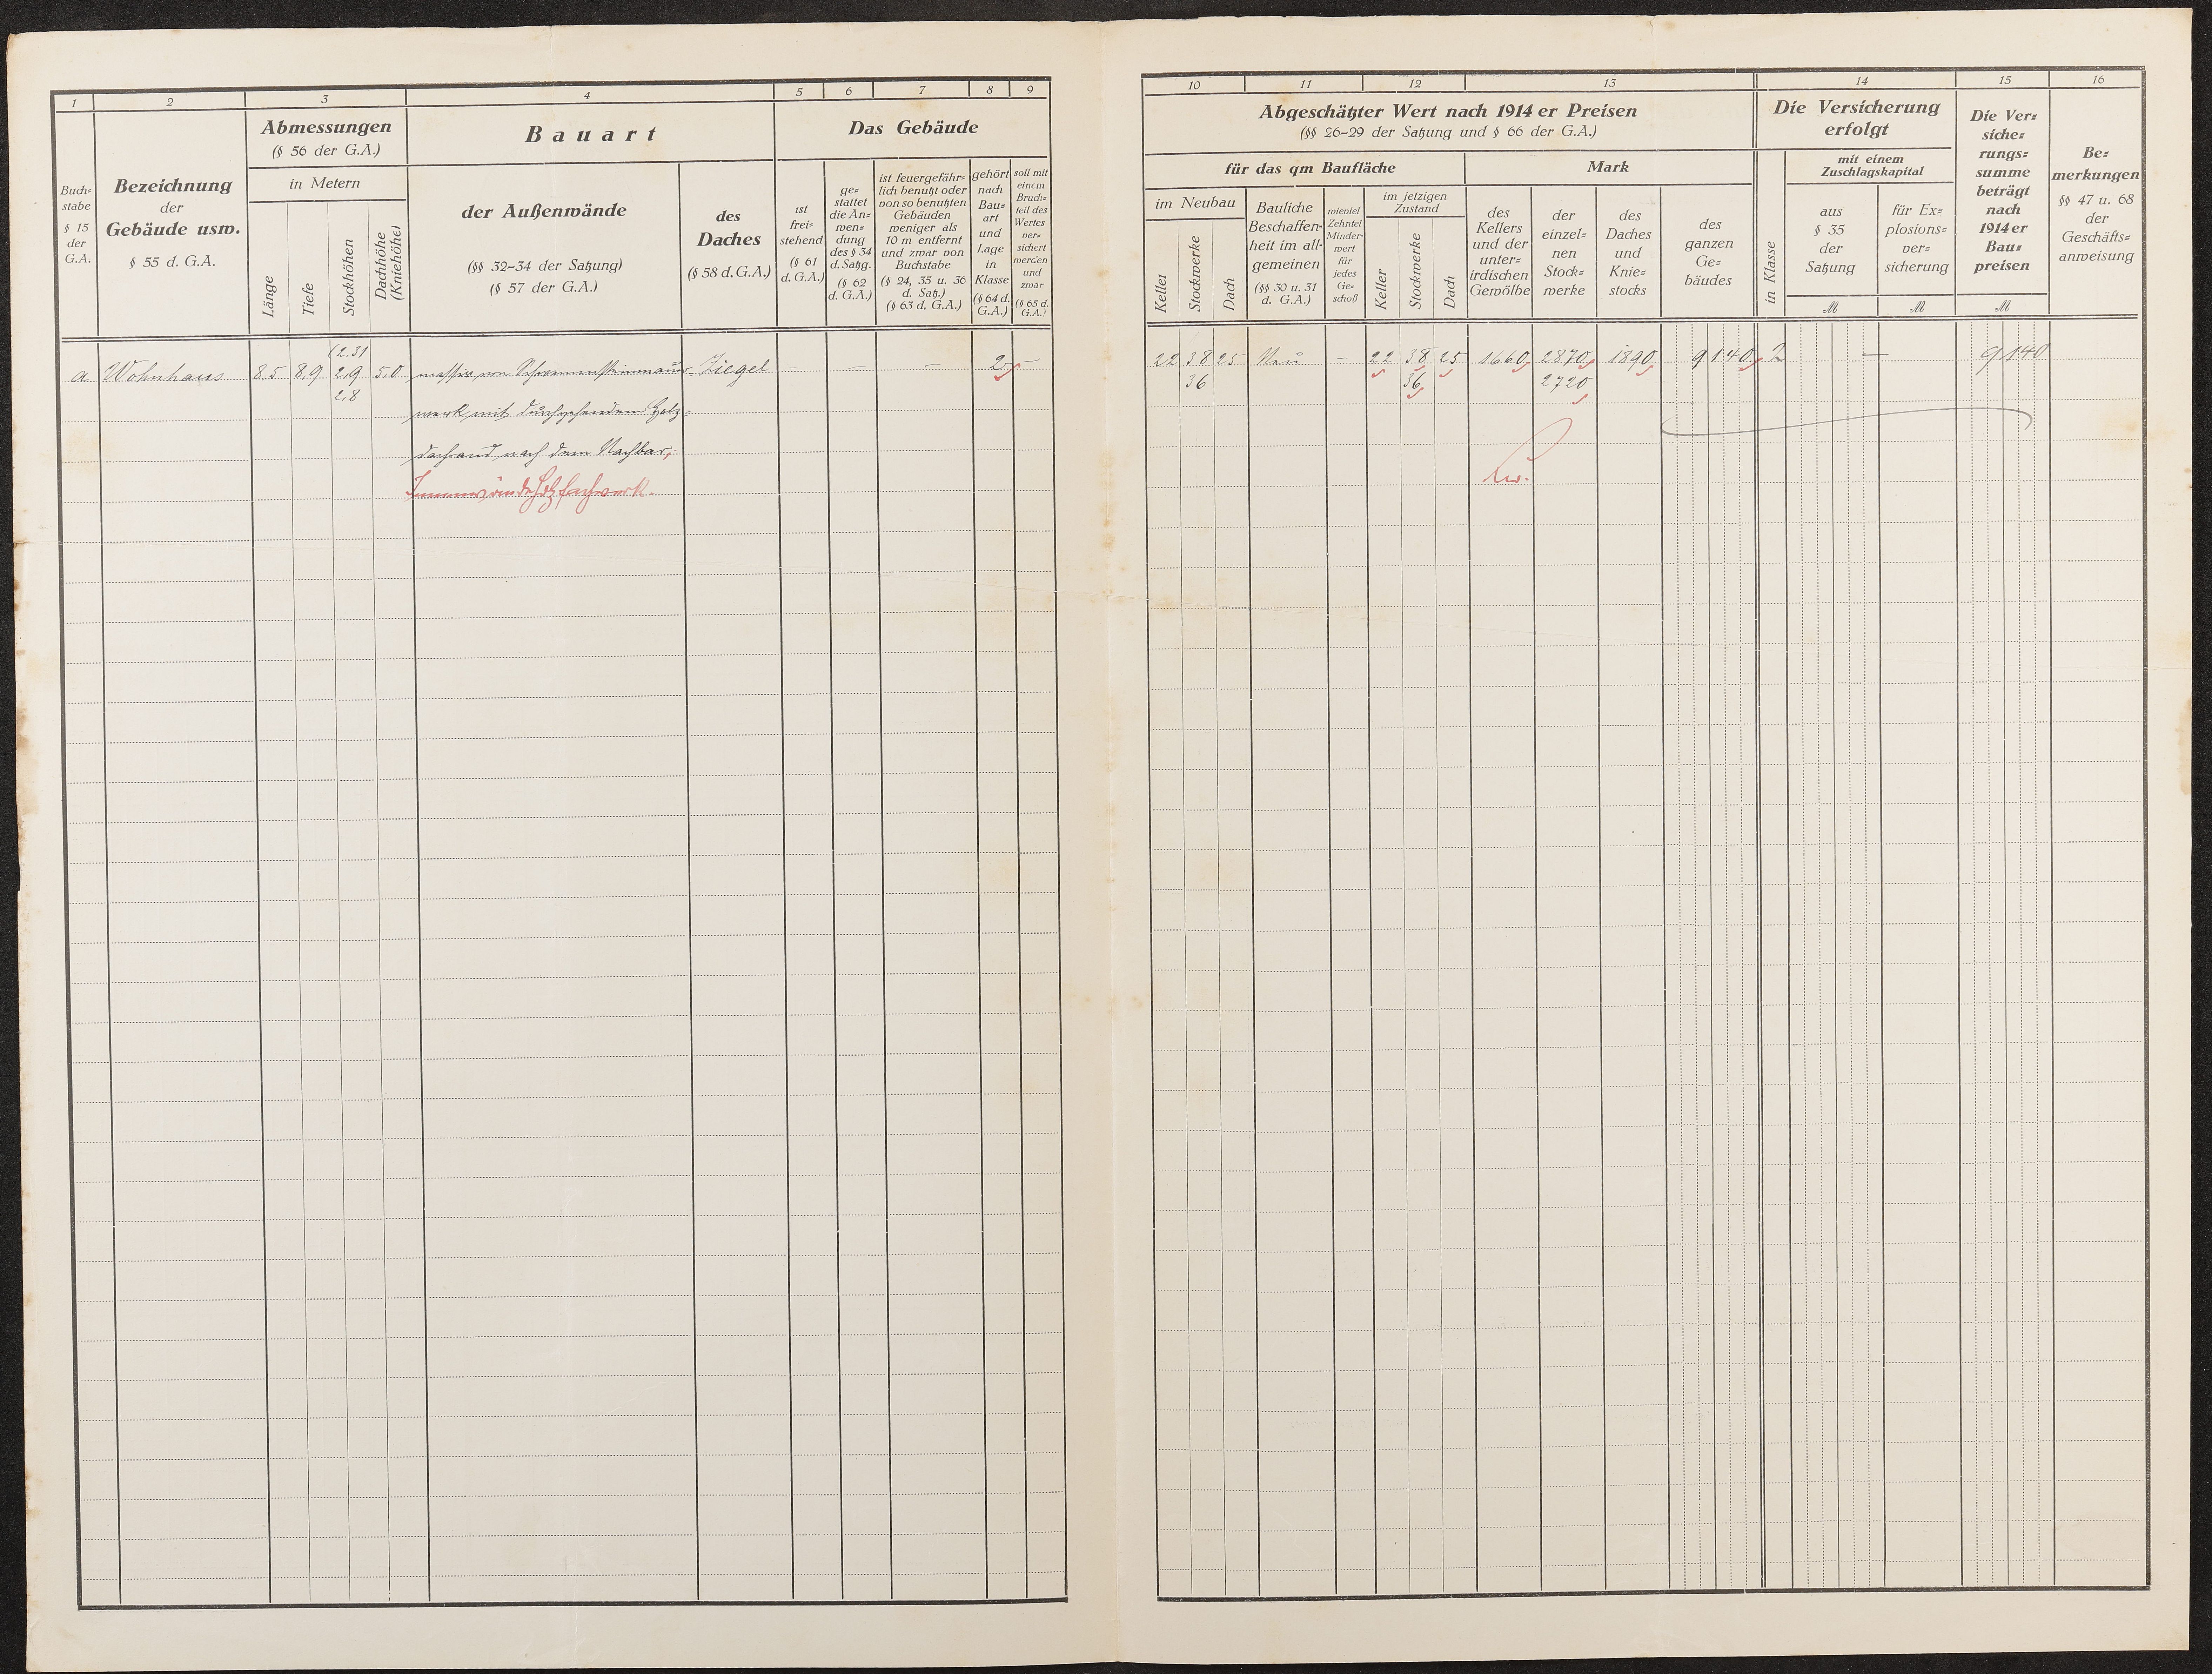 1 2 3 4 5 6 7 8 9
Buch=
stabe
§ 15
der
G.A.
Bezeichnung
der
Gebäude usw.
§ 55 d. G.A.
Abmessungen
(§ 56 der G.A.)
in Metern
Länge
Tiefe
Stockhöhen
Dachhöhe
(Kniehöhe)
Bauart
der Außenwände
(§§ 32–34 der Satzung)
(§ 57 der G.A.)
des
Daches
(§ 58 d. G.A.)
Das Gebäude
ist
frei=
stehend
(§ 61
d. G.A.)
ge=
stattet
die An=
wen=
dung
des § 34
d. Satzg.
(§ 62
d. G.A.)
ist feuergefähr=
lich benutzt oder
von so benutzten
Gebäuden
weniger als
10 m entfernt
und zwar von
Buchstabe
(§ 24, 35 u. 36
d. Satz.)
(§ 63 d. G.A.)
gehört
nach
Bau=
art
und
Lage
in
Klasse
(§ 64 d.
G.A.)
soll mit
einem
Bruch=
teil des
Wertes
ver=
sichert
werden
und
zwar
(§ 65 d.
G.A.)
(2,31
a Wohnhaus 8.5 8,9 2,9 5,0 massiv von Schwemmsteinmau= Ziegel – – – 2. –
2,8
werk mit durchgehenden Holz=
nach dem Nachbar,
Innenwände Holzfachwerk.
10 11 12 13 14 15 16
Abgeschätzter Wert nach 1914 er Preisen
(§§ 26–29 der Satzung und § 66 der G.A.)
für das qm Baufläche
im Neubau
Keller
Stockwerke
Dach
Bauliche
Beschaffen=
heit im all=
gemeinen
(§§ 30 u. 31
d. G.A.)
wieviel
Zehntel
Minder=
wert
für
jedes
Ge=
schoß
im jetzigen
Zustand
Keller
Stockwerke
Dach
Mark
des
Kellers
und der
unter=
irdischen
Gewölbe
der
einzel=
nen
Stock=
werke
des
Daches
und
Knie=
stocks
des
ganzen
Ge=
bäudes
Die Versicherung
erfolgt
in Klasse
mit einem
Zuschlagskapital
aus
§ 35
der
Satzung
für Ex=
plosions=
ver=
sicherung
M M M
Die Ver=
siche=
rungs=
summe
beträgt
nach
1914 er
Bau=
preisen
Be=
merkungen
§§ 47 u. 68
der
Geschäfts=
anweisung
22 38 25 Neu – 22 38 25 1660 2870 1890 9140 2 – 9140
36 36 2720